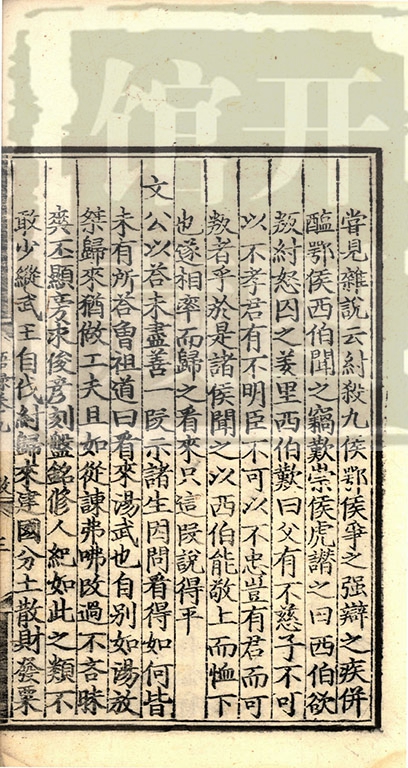 嘗見雜說云紂殺九侯鄂侯爭之强辯之疾併
醢鄂侯西伯聞之竊歎崇侯虎譖之曰西伯欲
叛紂怒囚之羑里西伯歎曰父有不慈子不可
以不孝君有不明臣不可以不忠豈有君而可
叛者乎於是諸侯聞之以西伯能敬上而恤下
也遂相率而歸之看來只這段說得平
文公以荅未盡善 段示諸生因問看得如何皆
未有所荅魯祖道曰看來湯武也自別如湯放
桀歸來猶做工夫且如從諫弗咈改過不吝昧
爽丕顯旁求俊彥刻盤銘修人紀如此之類不
敢少縱武王自伐紂歸來建國分土散財發粟